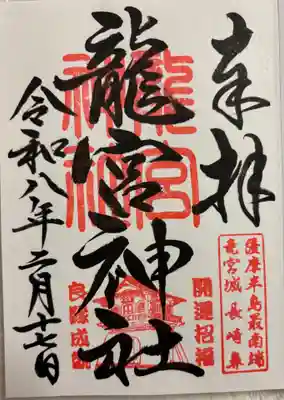 奉拝
薩摩半島最南端
竜宮城 長崎鼻
龍宮神社
龍宮
神社
開運招福
良縁成就
令和八年二月十七日